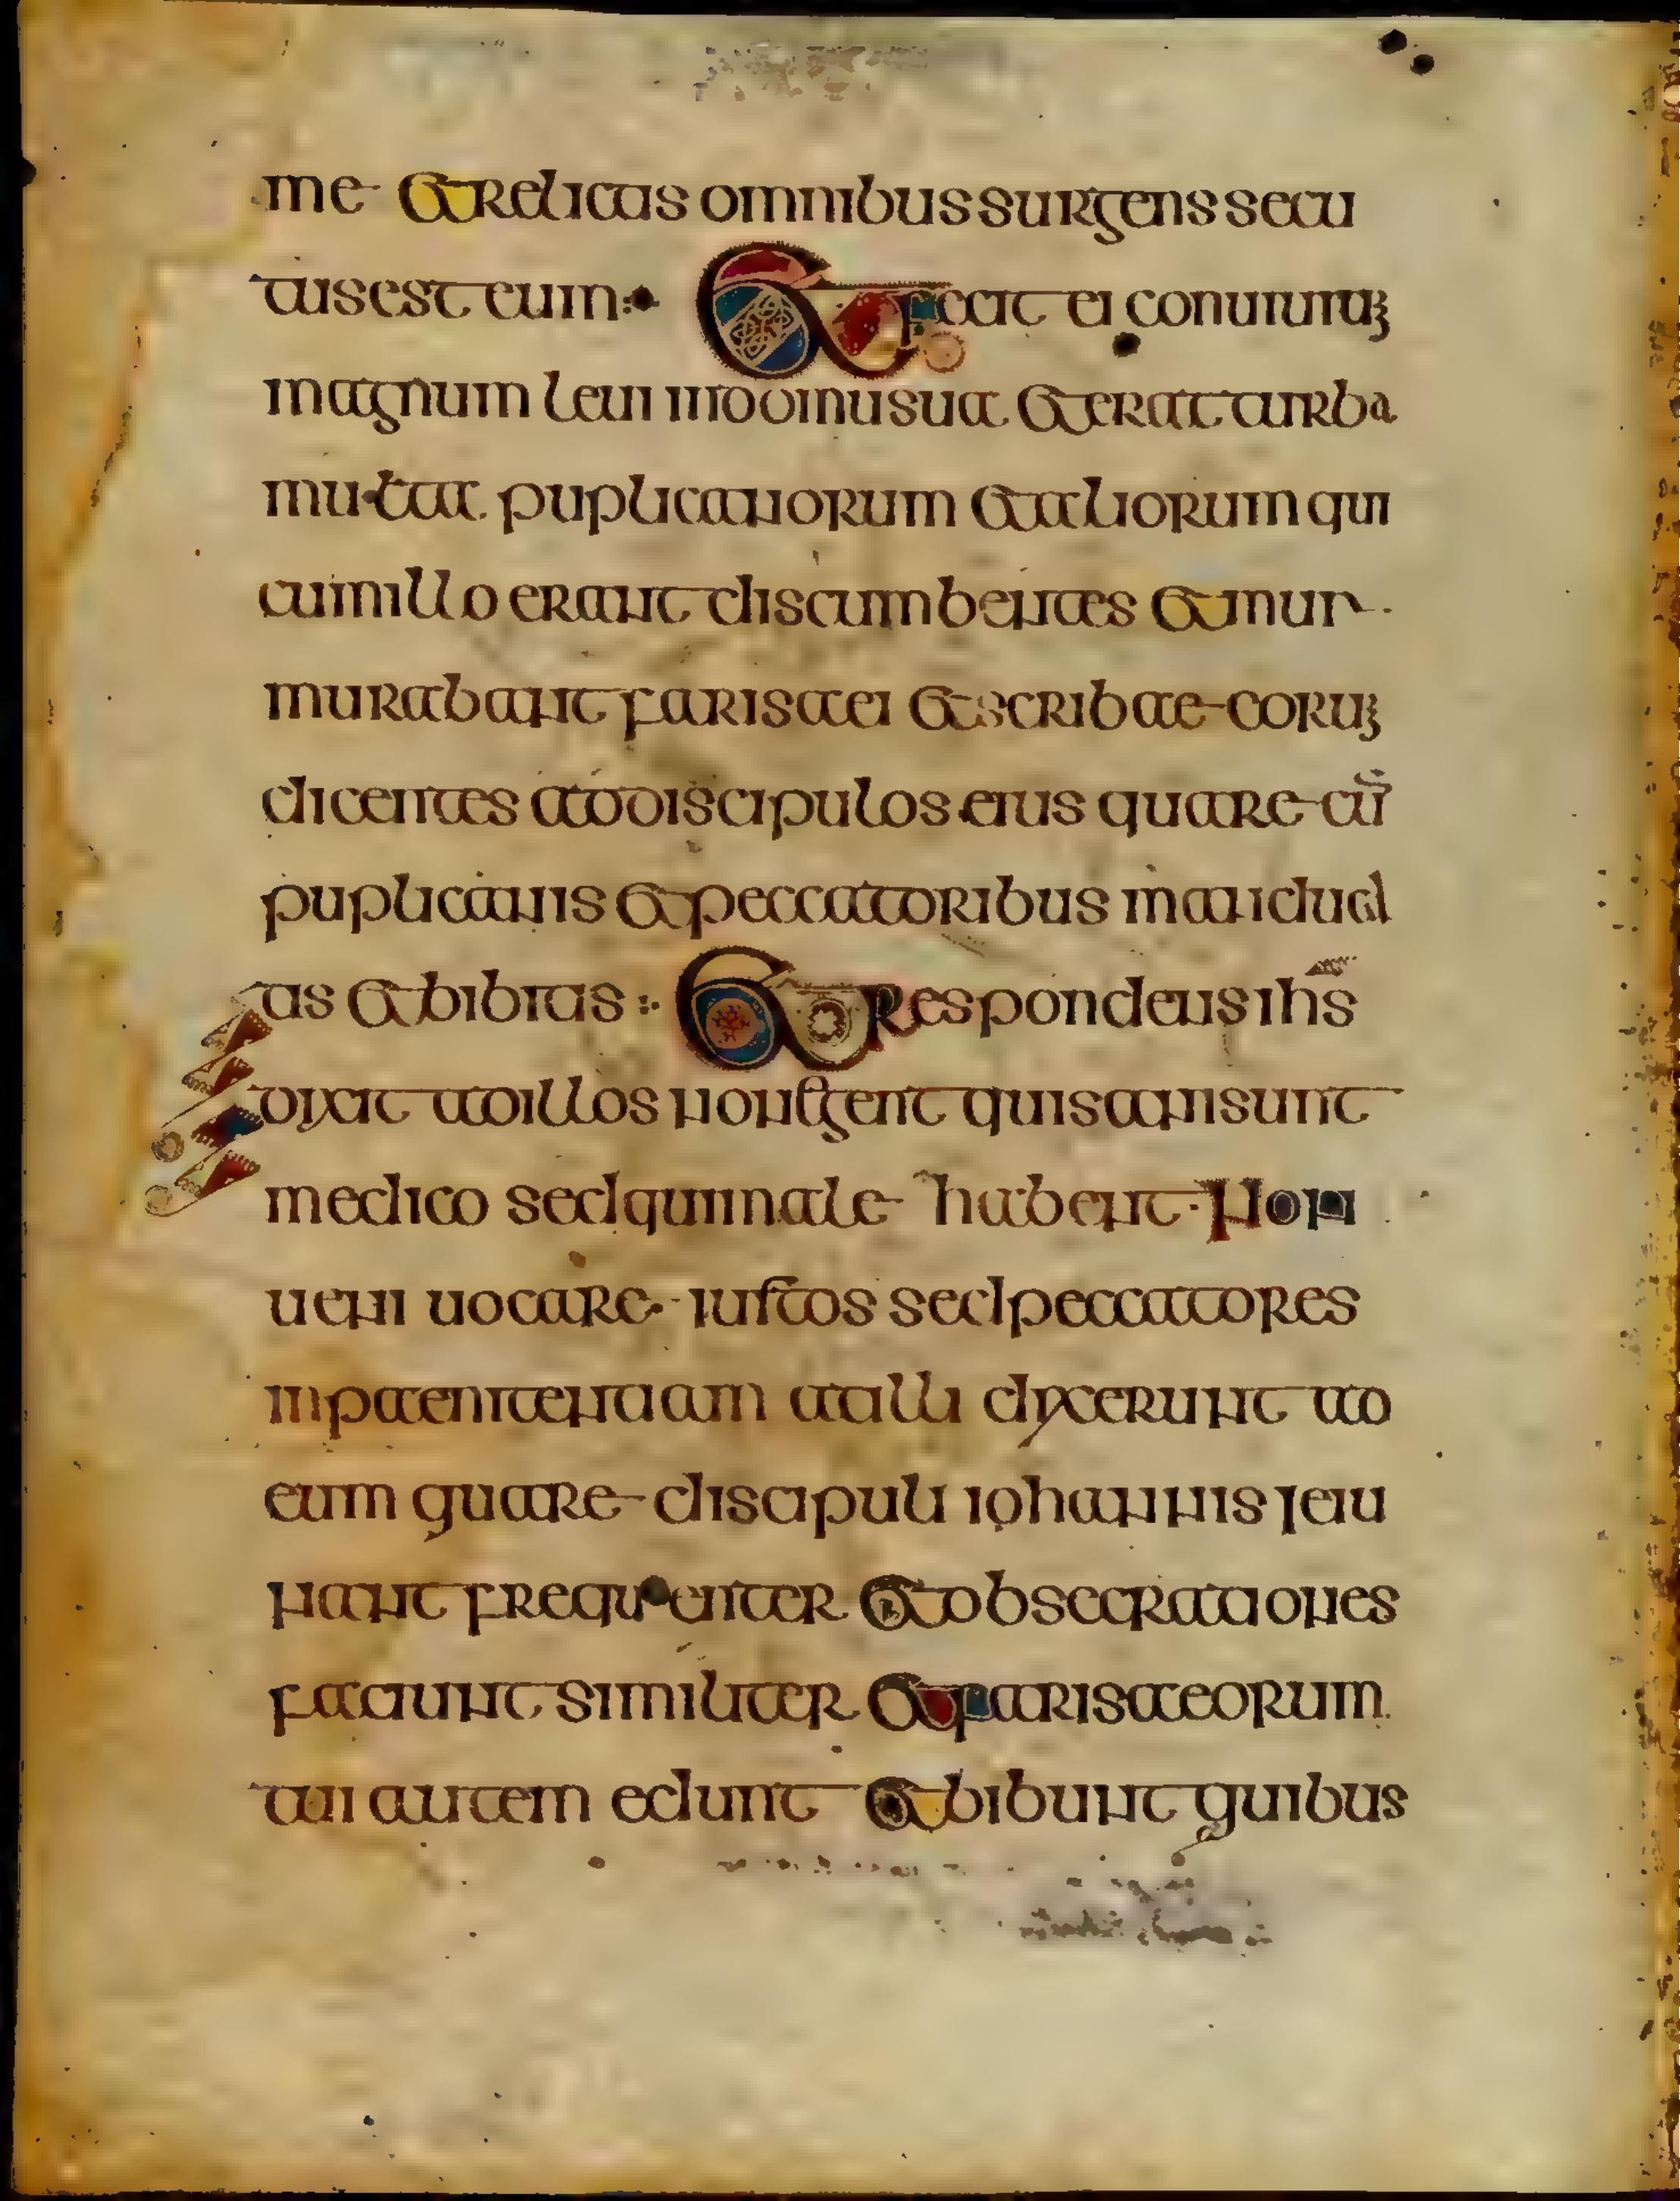 me et relictis omnibus surgens secu
tus est eum: Et fecit ei conuiuiuȝ
magnum leui in domu sua et erat turba
multa puplicanorum et aliorum qui
cum illo erant discumbentes et mur
murabant farisaei et scribae eoruȝ
dicentes ad discipulos eius quare cū
puplicanis et peccatoribus manducat
tis et bibitis: Et respondens ihs
dixit ad illos non egent qui sani sunt
medico sed qui male habent. Non
ueni uocare iustos sed peccatores
in paenitentiam at illi dixerunt ad
eum quare discipuli iohannis ieiu
nant frequenter et obsecrationes
faciunt similiter et farisaeorum
tui autem edunt et bibunt quibus